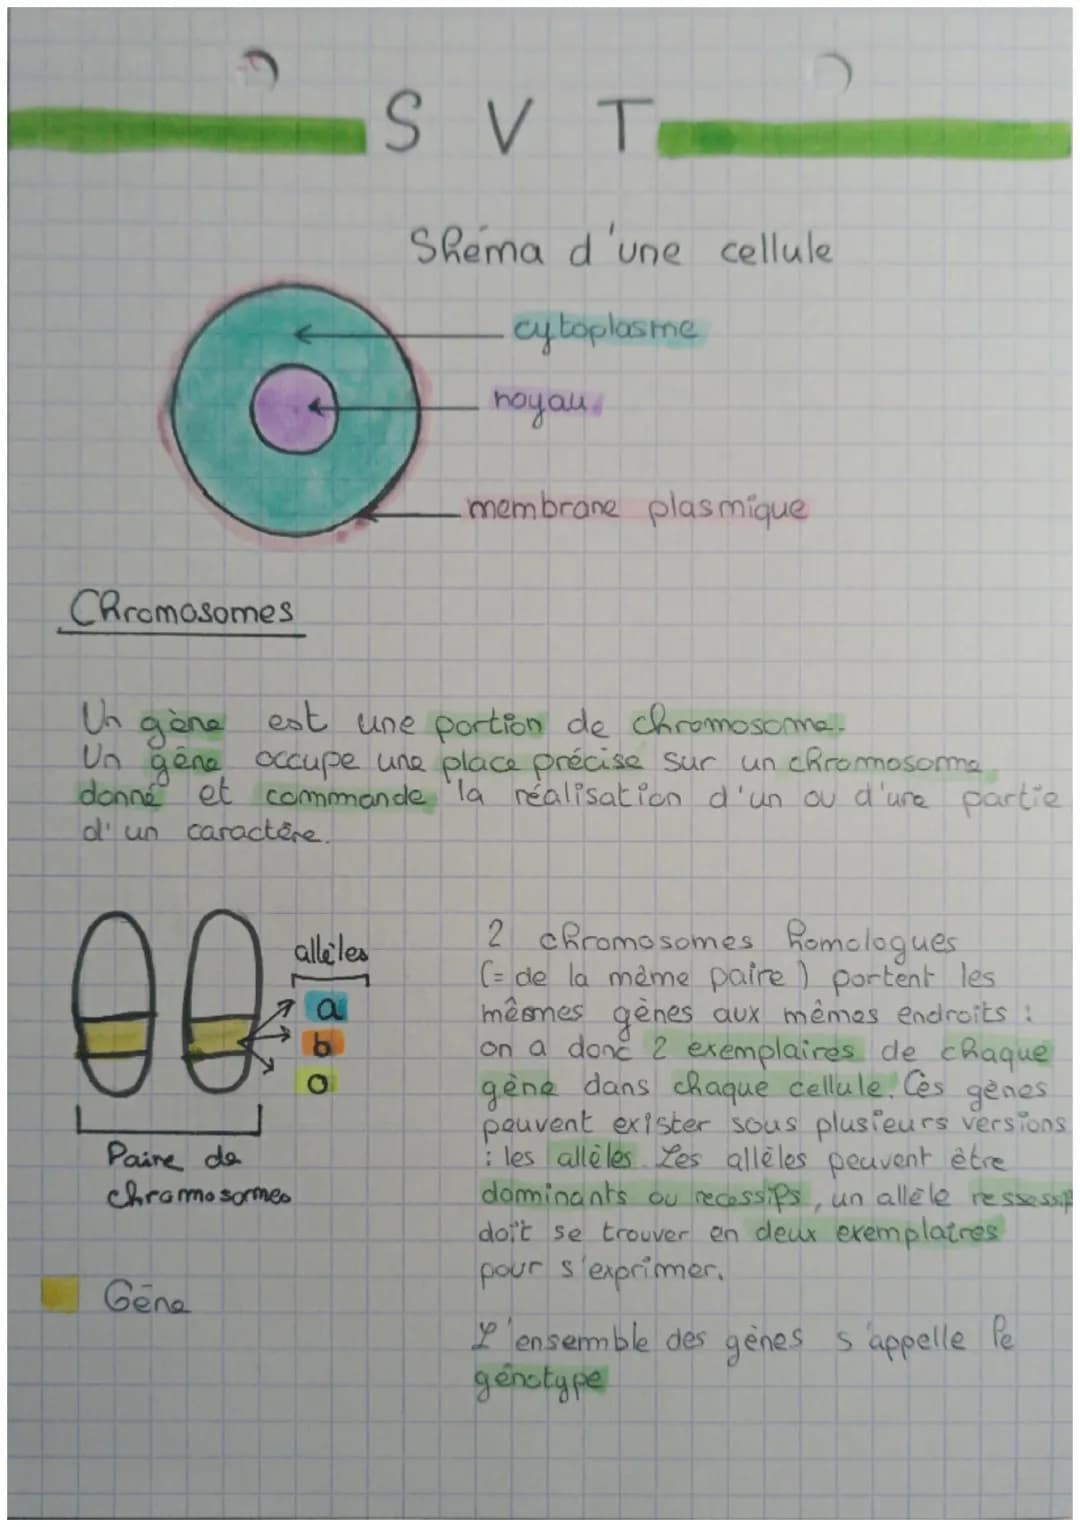 S V T
Shéma d'une cellule
cytoplasme
noyau
membrane plasmique
Chromosomes
Un gène est une portion de chromosome.
Un gène occupe une place précise sur un chromosome
donné et commande la réalisation d'un ou d'une partie
d'un caractère.
allèles
a
b
o
Paire de
chromosomes
Gène
2 chromosomes homologues
(= de la même paire) portent les
mêmes gènes aux mêmes endroits :
on a donc 2 exemplaires de chaque
gène dans chaque cellule. Ces gènes
peuvent exister sous plusieurs versions
: les allèles. Les allèles peuvent être
dominants ou recessifs, un allèle ressessif
doit se trouver en deux exemplaires
pour s'exprimer.
L'ensemble des gènes s'appelle le
génotype